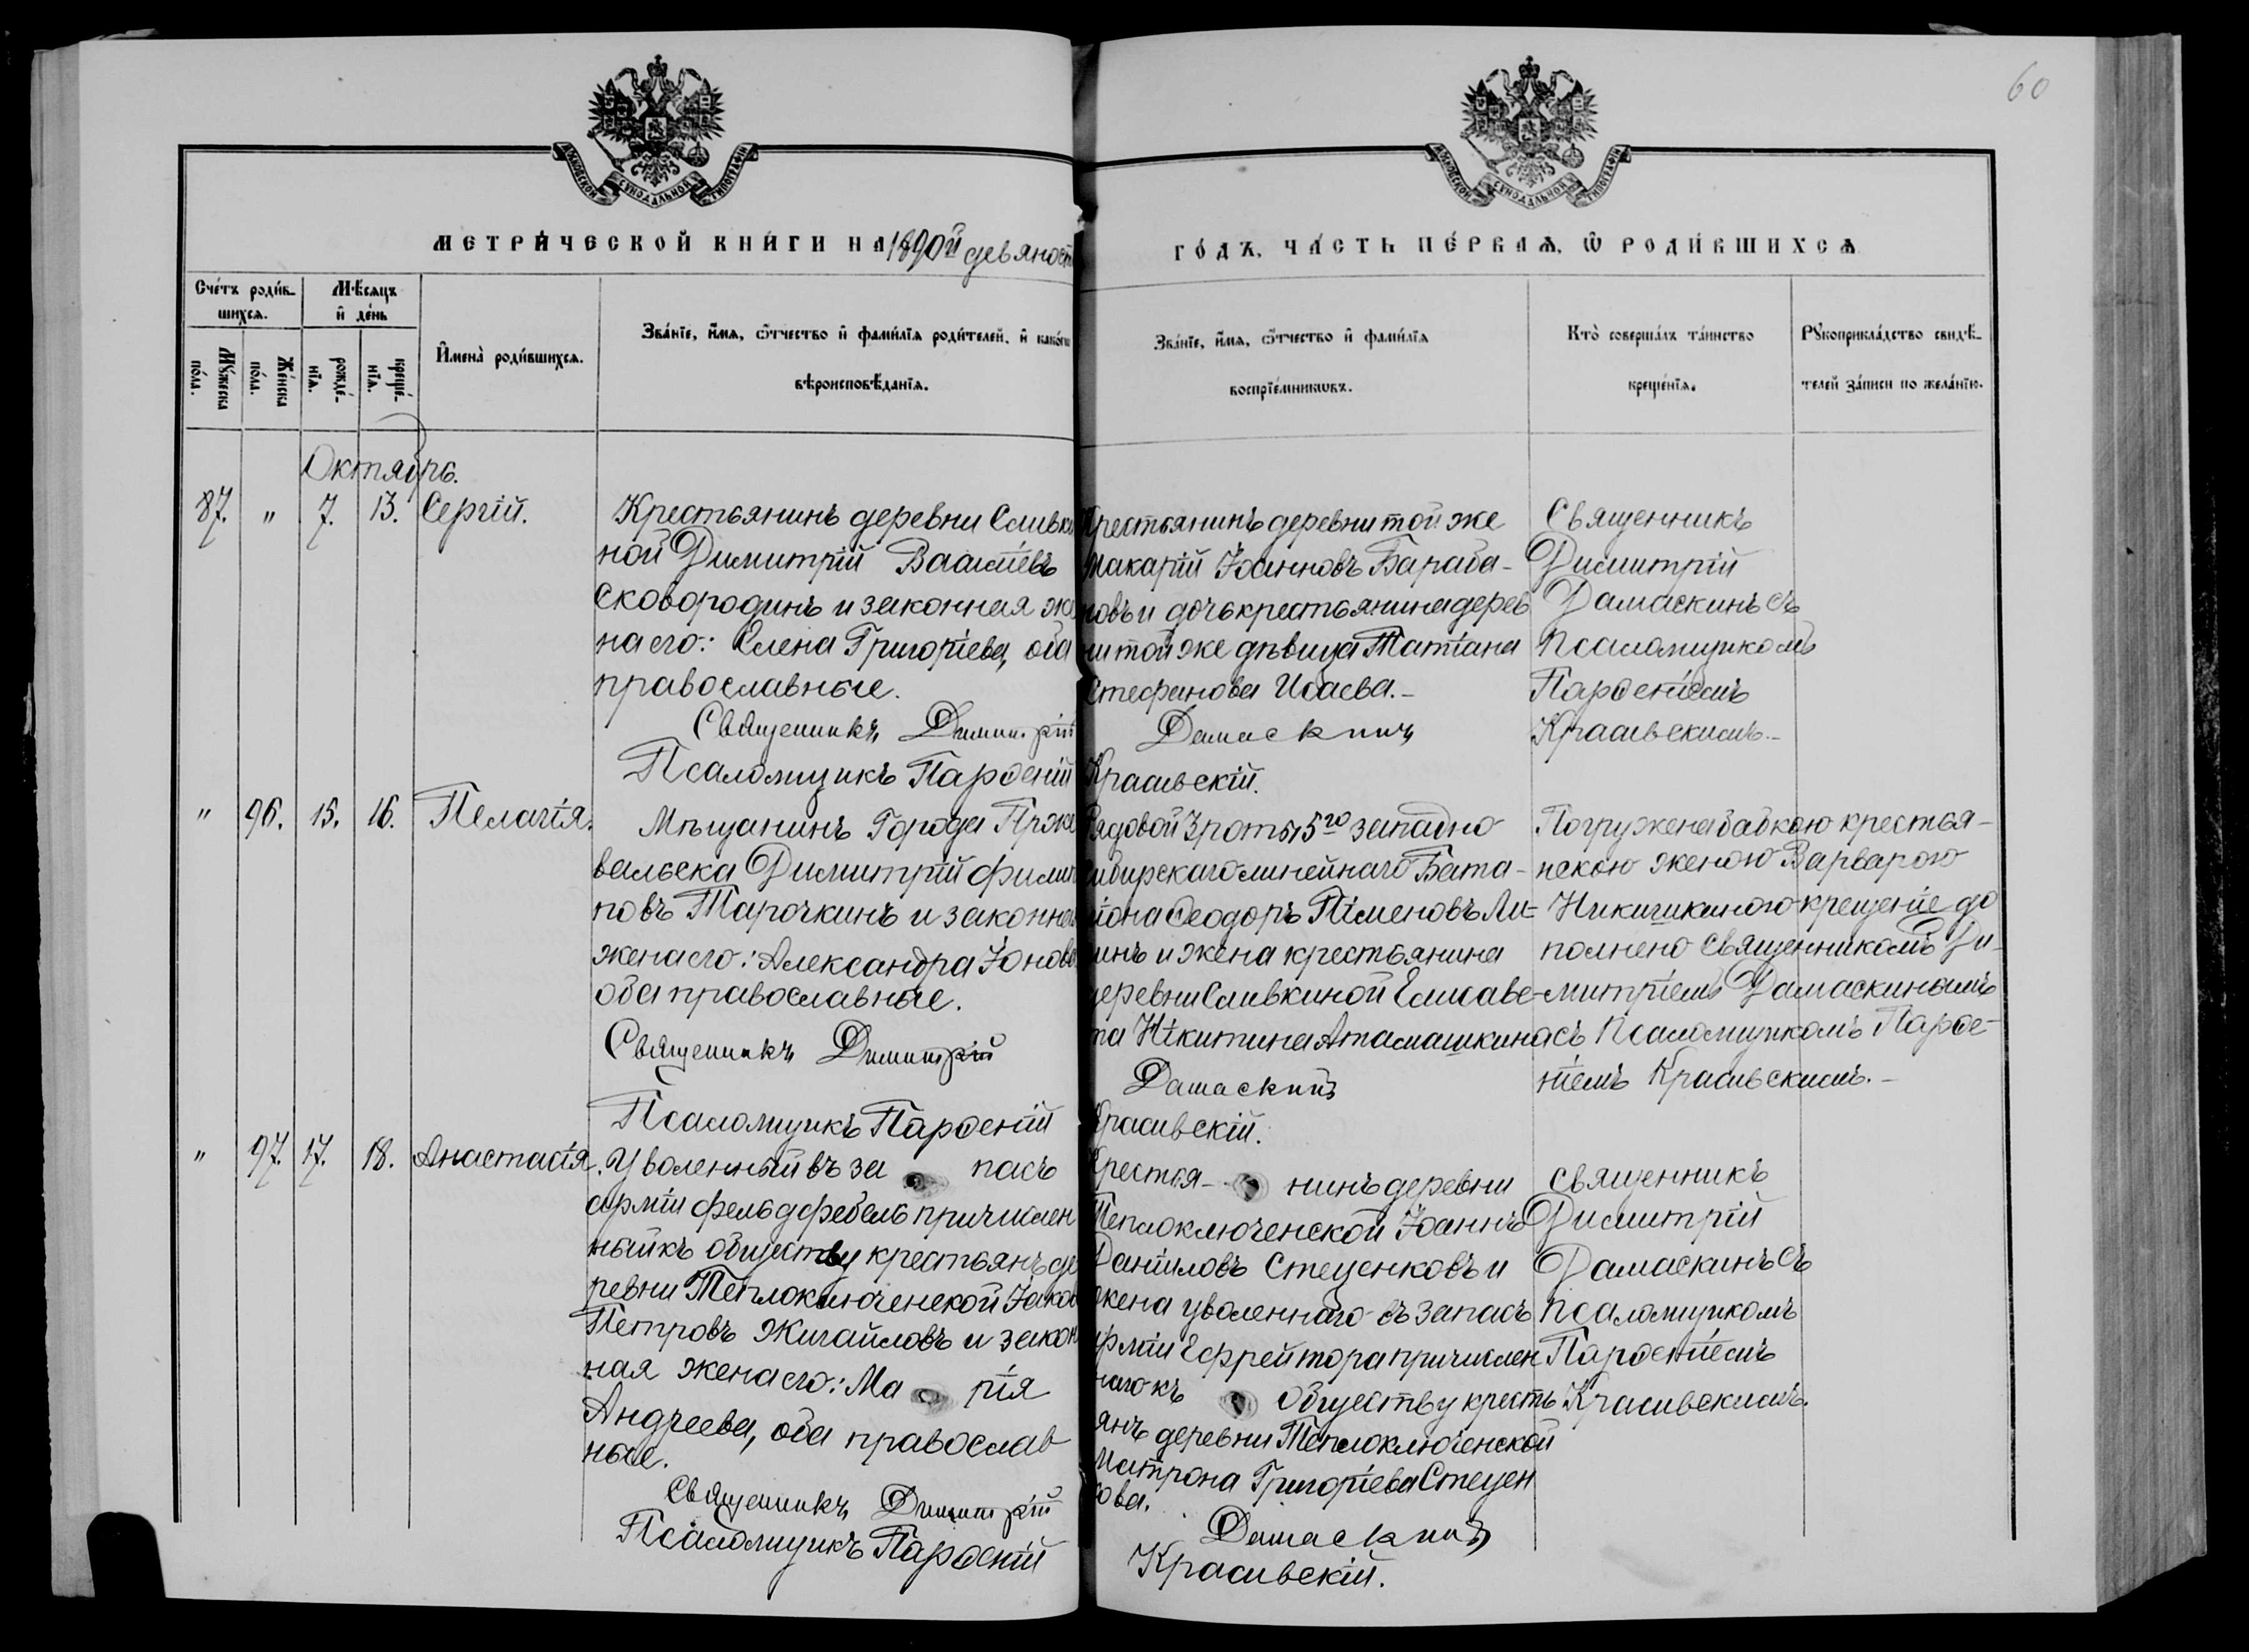 60
МОСКОВСКОЙ СУНОДАЛЬНОЙ ТИПОГРАФІИ
МОСКОВСКОЙ СУНОДАЛЬНОЙ ТИПОГРАФІИ
МЕТРИ́ЧЕСКОЙ КНИ́ГИ НА 1890й девяност
ГО́ДЪ, ЧА́СТЬ ПЕ́РВАѦ, Ѡ РОДИ́ВШИХСѦ
Сче́тъ роди́в-
шихсѧ.
Мѣ́сѧцъ
и҆ де́нь
Мꙋ́жеска
по́ла.
Же́нска
по́ла.
рожде́-
нїѧ.
креще́-
нїѧ.
И҆мена̀ роди́вшихсѧ.
Зва́нїе, и҆́мѧ, ѻ҆́тчество и҆ фами́лїѧ роди́телей, и҆ како́гѡ
вѣроисповѣ́данїѧ.
Зва́нїе, и҆́мѧ, ѻ҆́тчество и҆ фами́лїѧ
воспрїе́мникѡвъ.
Кто̀ соверша́лъ та́инство
креще́нїѧ.
Рꙋкоприкла́дство свидѣ́-
телей за́писи по жела́нїю.
Октябрь.
87. " 7. 13. Сергій.
Крестьянинъ деревни Сливки
ной Димитрій Василіевъ
Сковородинъ и законная же
на его: Елена Григоріева, оба
православные.
Священникъ Димитрій
Псаломщикъ Парѳеній
Крестьянинъ деревни той же
Макарій Іоанновъ Бараба-
новъ и дочь крестьянина дерев
ни той же дѣвица Татіана
Стефанова Исаева.-
Дамаскинъ
Красивскій.
Священникъ
Димитрій
Дамаскинъ съ
Псаломщикомъ
Парѳеніемъ
Красивскимъ.-
" 96. 15. 16. Пелагія.
Мѣщанинъ Города Прже
вальска Димитрій Филип
повъ Тарочкинъ и законная
жена его: Александра Іонова
оба православные.
Священникъ Димитрій
Псаломщикъ Парѳеній
Рядовой 3 роты, 5го западно
сибирскаго линейнаго Бата-
ліона Ѳеодоръ Піменовъ Ли-
инъ и жена крестьянина
деревни Сливкиной Елисаве-
та Нікитина Атамашкина
Дамаскинъ
Красивскій.
Погружена бабкою крестья-
нскою женою Варварою
Никишкиною крещеніе до
полнено Священникомъ Ди-
митріемъ Дамаскинымъ
съ Псаломщикомъ Парѳе-
ніемъ Красивскимъ.-
" 97. 17. 18. Анастасія.
Уволенный въ за пасъ
арміи фельдфебель причислен
ный къ обществу крестьянъ де
ревни Теплоключенской Іаков
Петровъ Жигайловъ и закон
ная жена его: Ма рія
Андреева, оба православ
ные.
Священникъ Димитрій
Псаломщикъ Парѳеній
Крестья- нинъ деревни
Теплоключенской Іоаннъ
Даніиловъ Стеценковъ и
жена уволеннаго въ запасъ
арміи Ефрейтора причислен
наго къ Обществу кресть
янъ деревни Теплоключенской
Матрона Григоріева Стецен
кова.
Дамаскинъ
Красивскій.
Священникъ
Димитрій
Дамаскинъ съ
Псаломщикомъ
Парѳеніемъ
Красивскимъ.